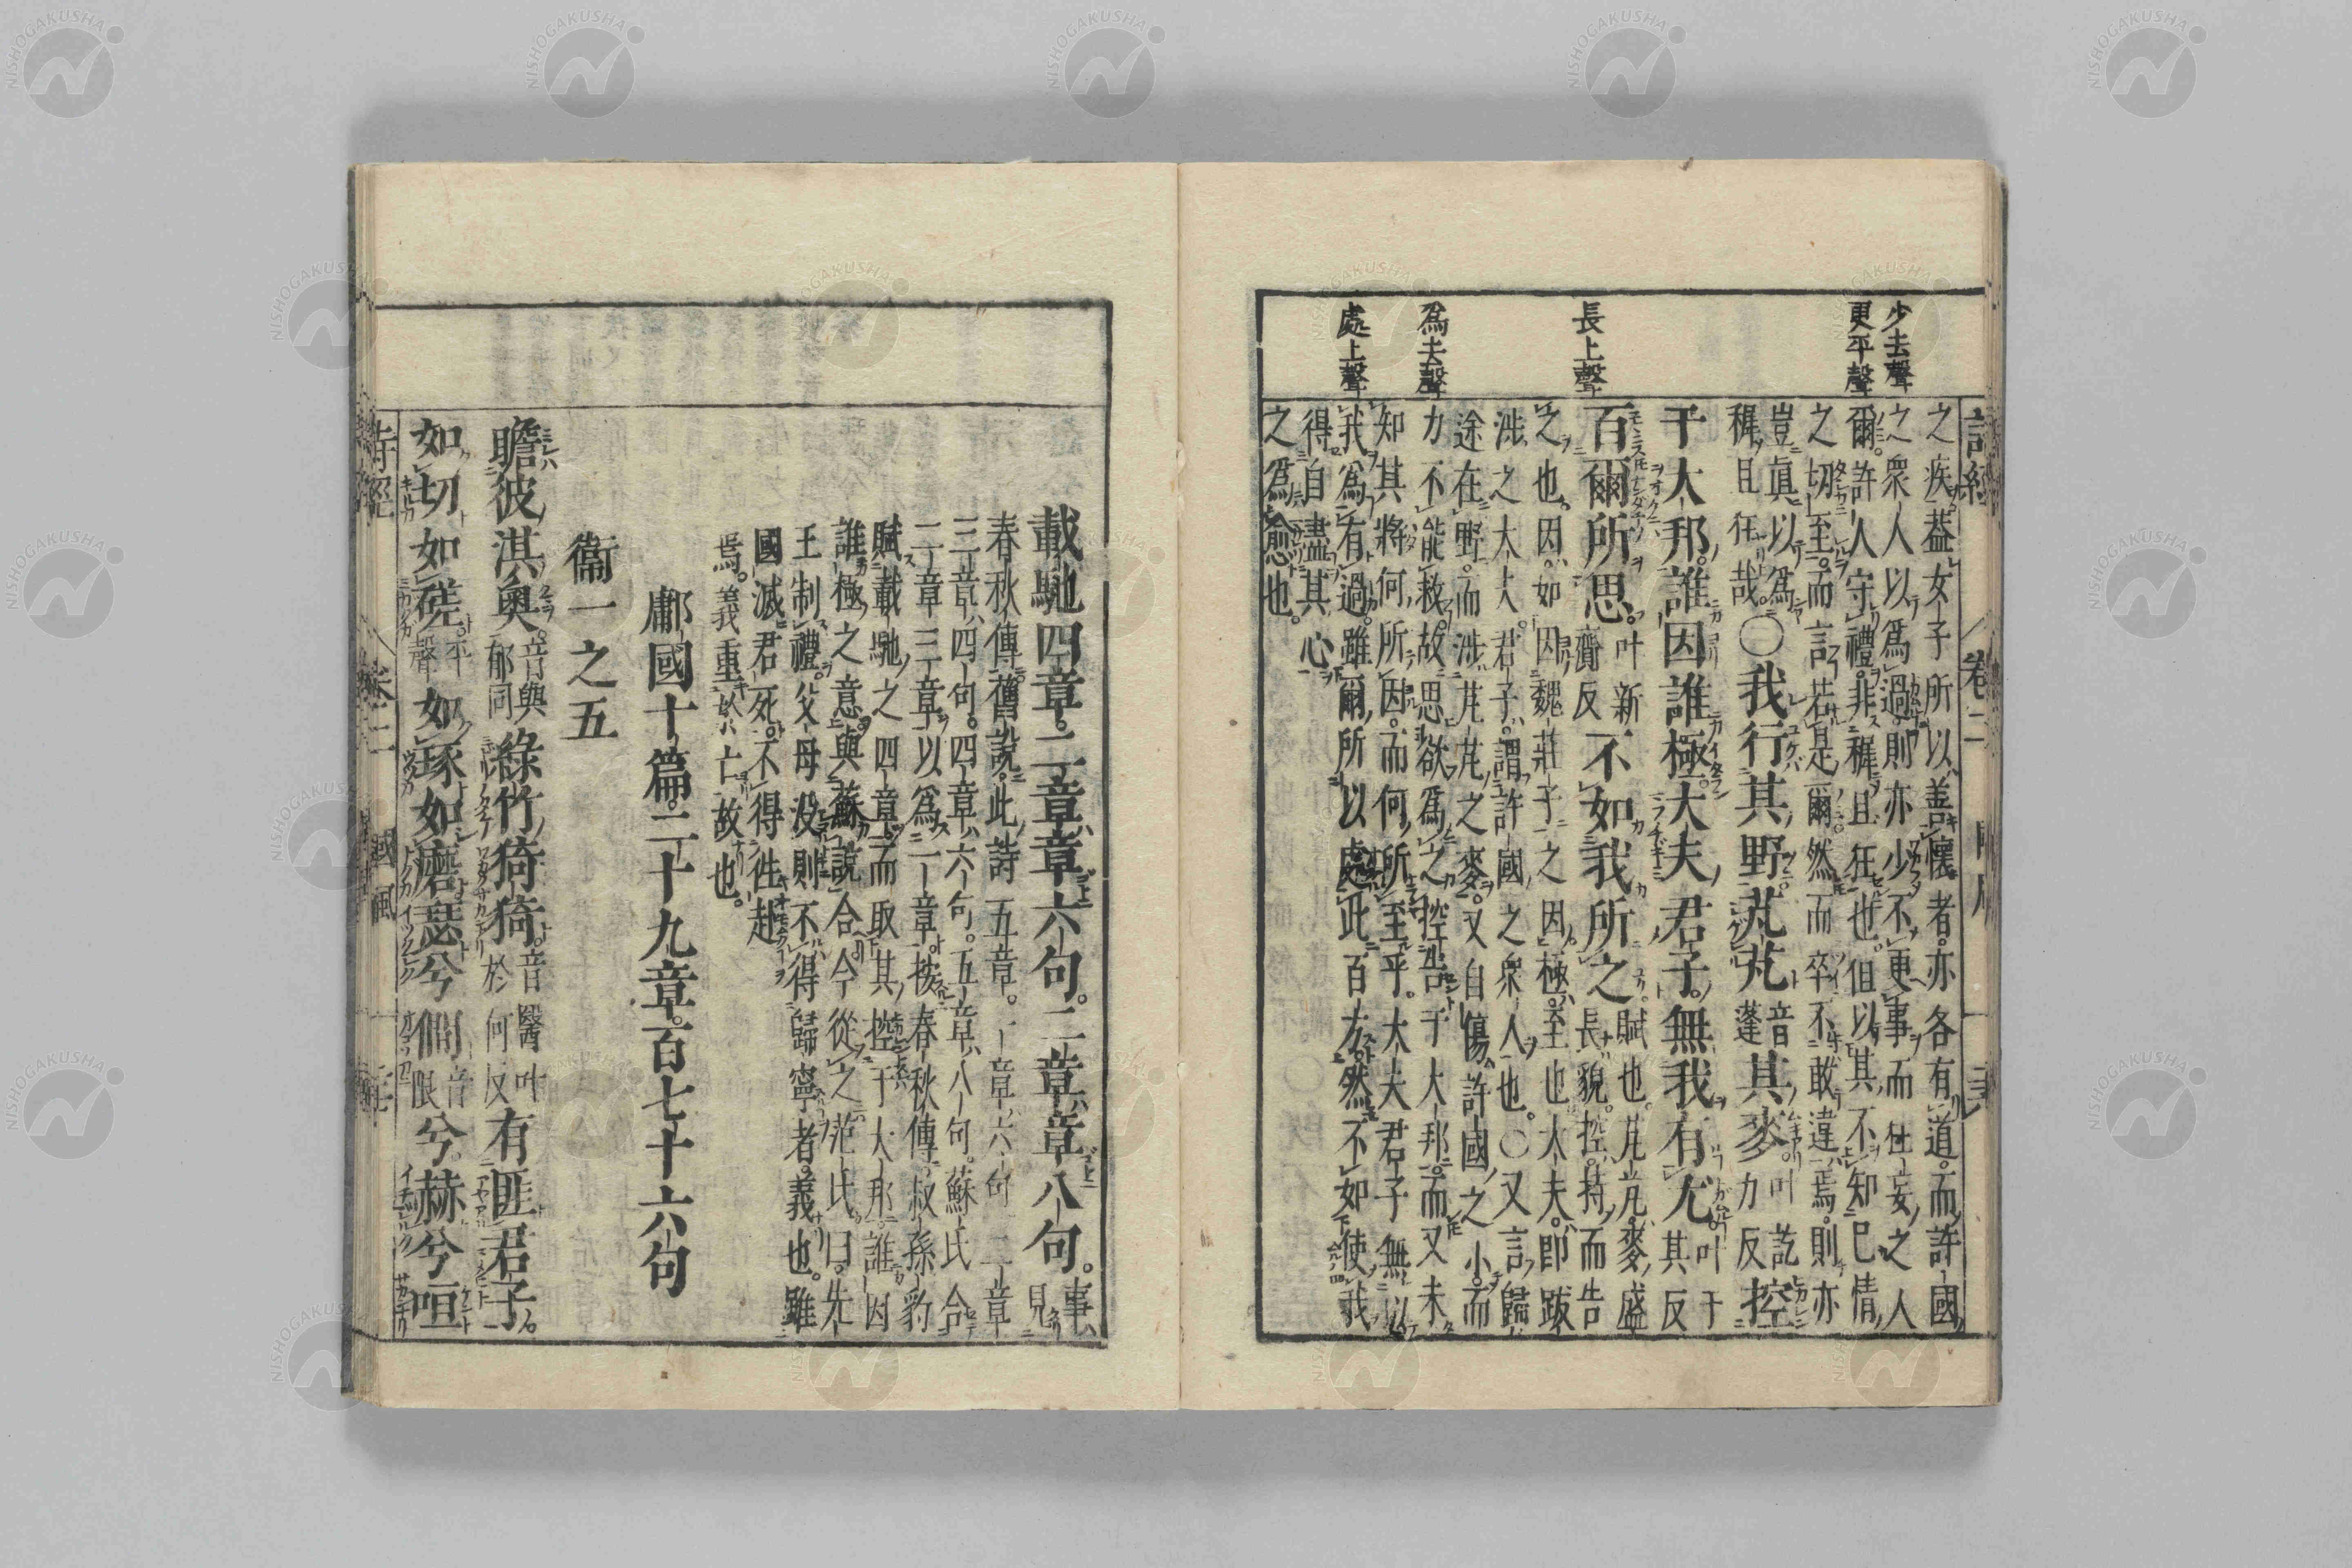 少去聲
更平聲
長上聲
爲去聲
處上聲
之疾。蓋女子所以善懷者。亦各有道。而許國
之衆人以爲過。則亦少不更事而狂妄之人
爾。許人守禮。非穉且狂也。但以其不知己情
之切至。而言若是爾。然而卒不敢違焉。則亦
豈眞以爲
穉且狂哉。〇我行其野芃芃音蓬其麥。叶訖力反控
于大邦。誰因誰極。大夫君子。無我有尤。叶于其反
百爾所思。叶新齎反不如我所之。賦也。芃芃。麥盛長貌。控。持而告
之也。因。如因魏莊子之因。極。至也。大夫。即跋
涉之大夫。君子。謂許國之衆人也。〇又言歸
途在野。而涉芃芃之麥。又自傷許國之小。而
力不能救。故思欲爲之控告于大邦。而又未
知其將何所因。而何所至乎。大夫君子無以
我爲有過。雖爾所以處此百方。然不如使我
得自盡其心
之爲愈也。
載馳四章。二章章六句。二章章八句。事見
春秋傳。舊說。此詩五章。一章六句。二章
三章四句。四章六句。五章八句。蘇氏合
二章三章以爲一章。按春秋傳。叔孫豹
賦載馳之四章。而取其控于大邦。誰因
誰極之意。與蘇說合。今從之。范氏曰。先
王制禮。父母没則不得歸寧者。義也。雖
國滅君死。不得往赴
焉。義重於亡故也。
鄘國十篇。二十九章。百七十六句
衞一之五
瞻彼淇奧。音與郁同綠竹猗猗。音醫叶於何反有匪君子。
如切如磋。平聲如琢如磨。瑟兮僩音限兮。赫兮咺